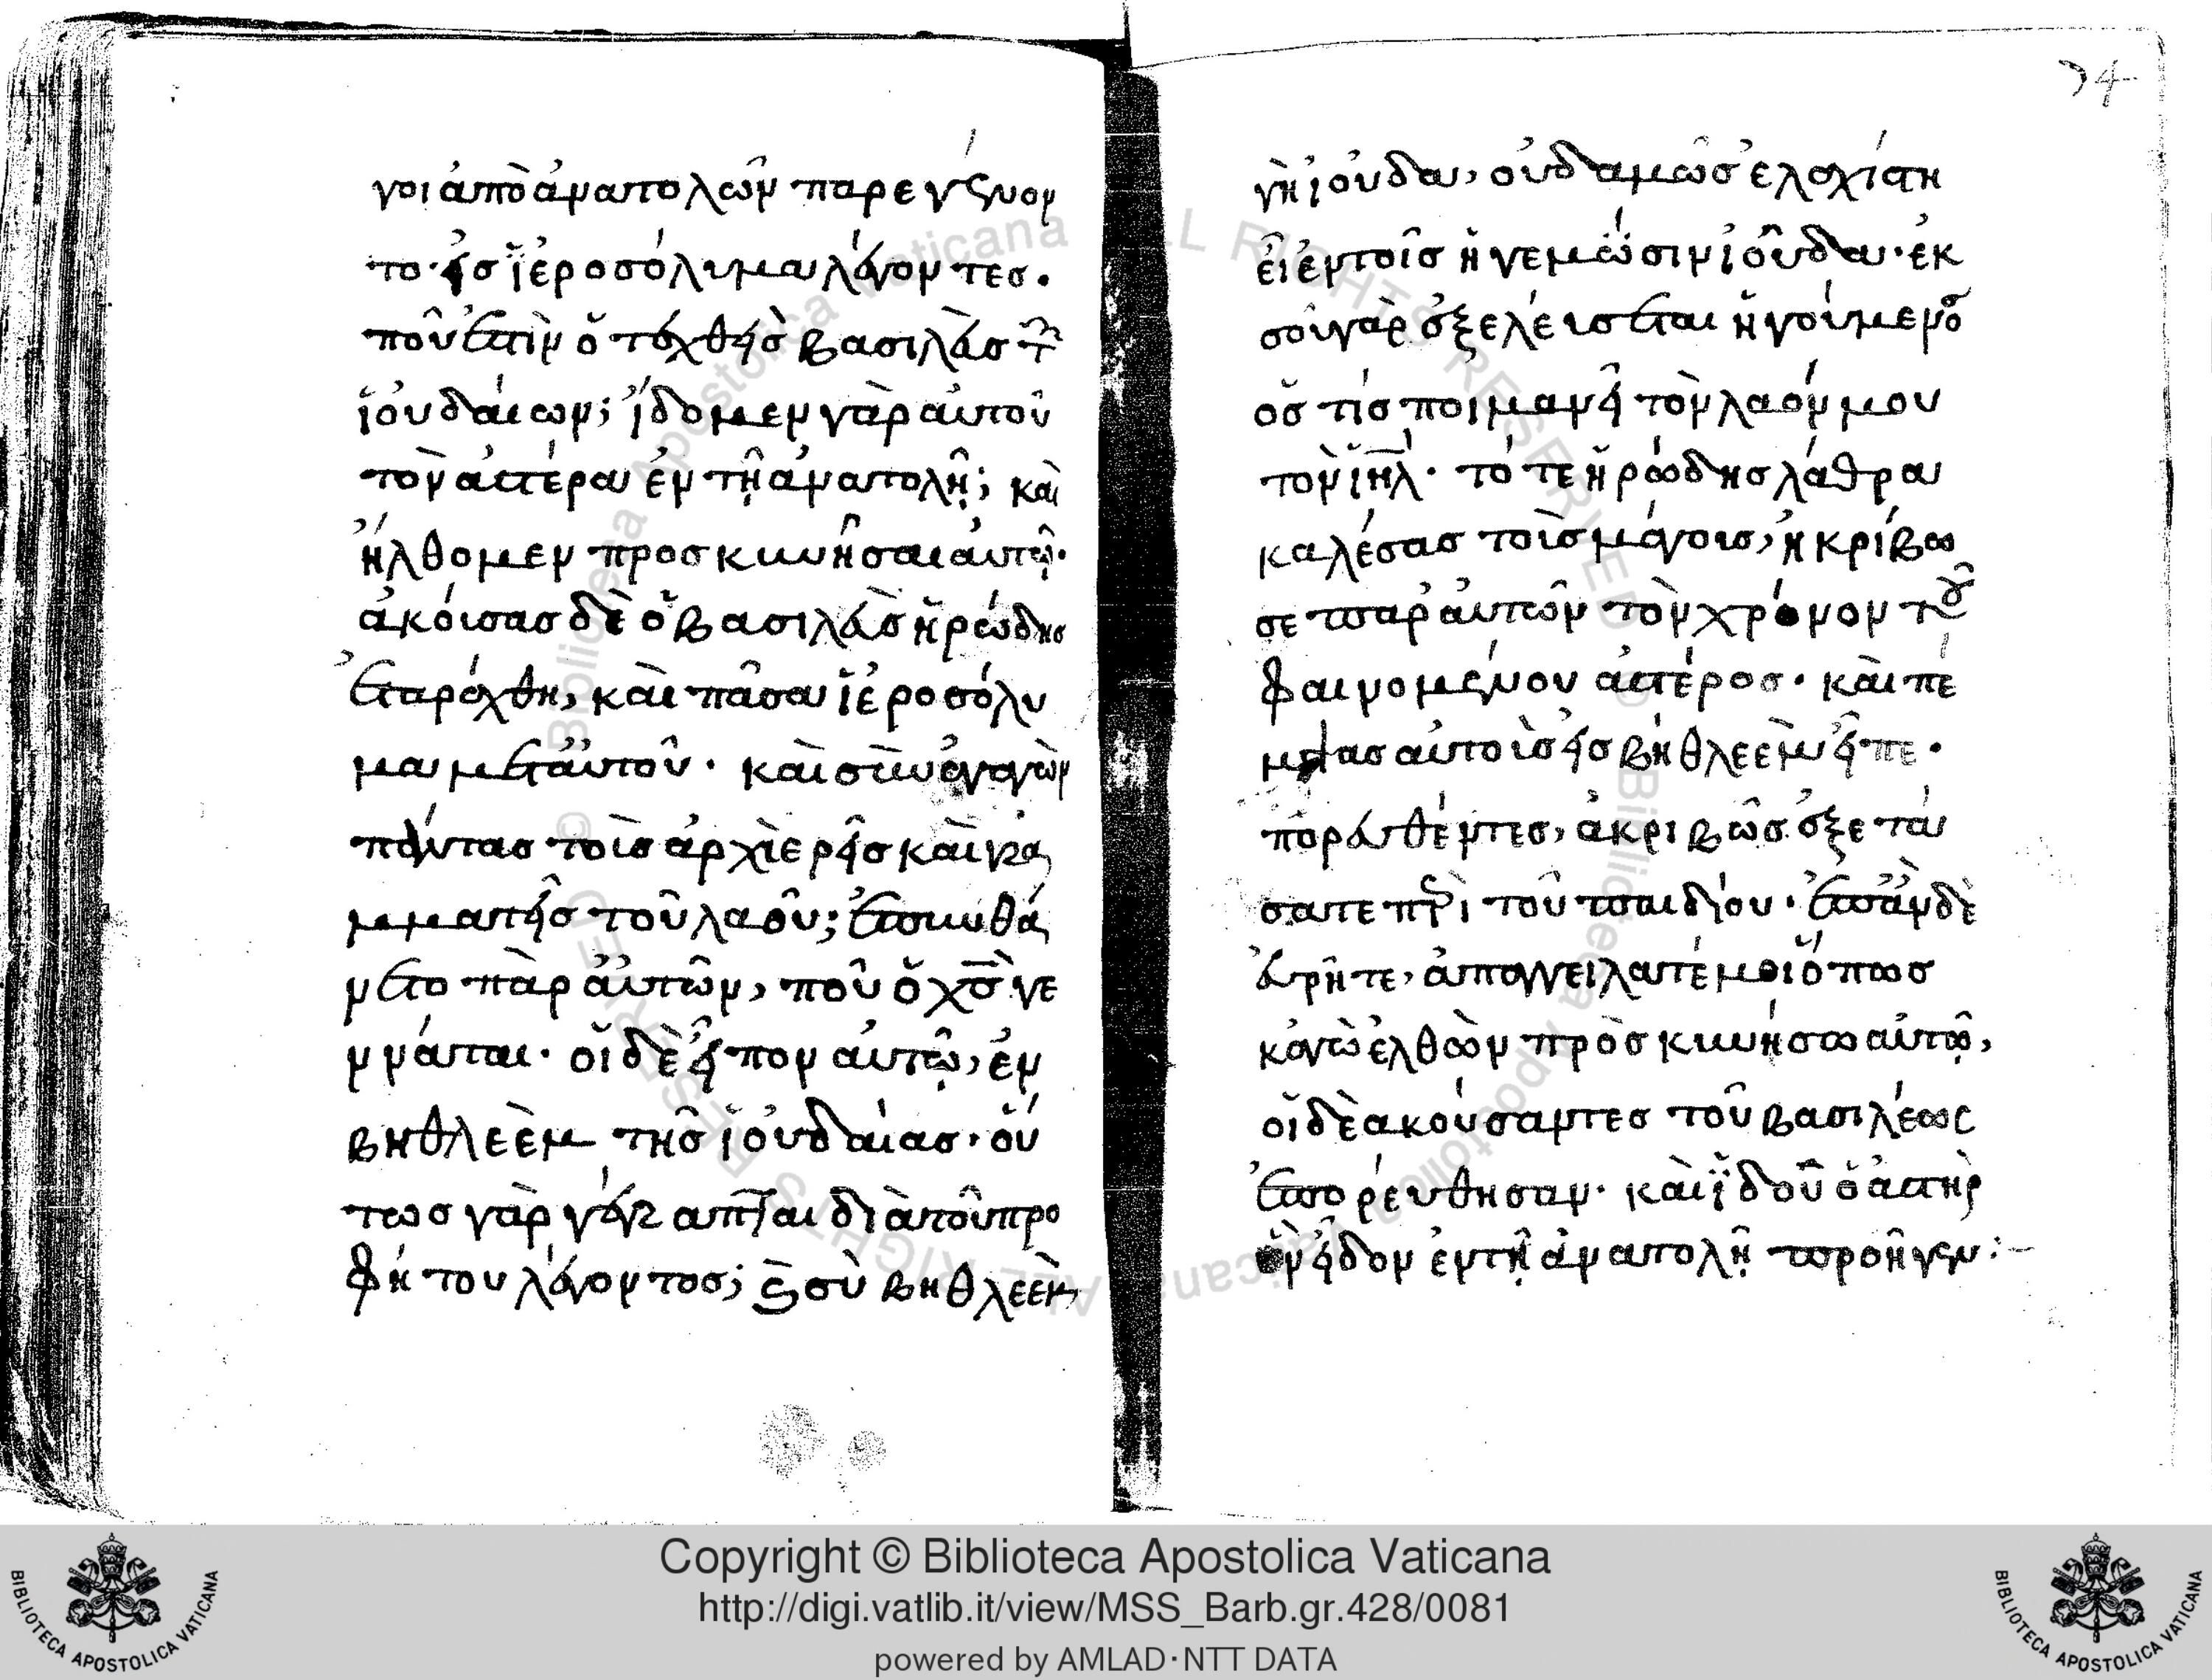 γοι ἀπὸ ἀνατολῶν παρεγένον
το εἰς ἱεροσόλυμα λέγοντες.
ποῦ ἐστὶν ὁ τεχθεὶς βασιλεὺς τῶν
ἰουδαίων; ἴδομεν γὰρ αὐτοῦ
τὸν ἀστέρα ἐν τῇ ἀνατολῇ; καὶ
ἤλθομεν προσκυνῆσαι αὐτῷ·
ἀκούσας δὲ ὁ βασιλεὺς ἡρώδης
ἐταράχθη, καὶ πᾶσα ἱεροσόλυ
μα μετ' αὐτοῦ. καὶ συναγαγὼν
πάντας τοὺς ἀρχιερεῖς καὶ γρα
μματεῖς τοῦ λαοῦ; ἐπυνθά
νετο παρ' αὐτῶν, ποῦ ὁ χς γε
ννάται. οἱ δὲ εἶπον αὐτῷ, ἐν
βηθλεὲμ τῆς ἰουδαίας. οὕ
τως γὰρ γέγραπται διὰ τοῦ προ
φήτου λέγοντος; καὶ σὺ βηθλεὲμ,
74
γὴ ἰούδα, οὐδαμῶς ἐλαχίστη
εἶ ἐν τοῖς ἡγεμῶσιν ἰοῦδα· ἐκ
σοῦ γὰρ ἐξελεύσεται ἡγούμενος
ὅς τις ποιμανεῖ τὸν λαόν μου
τὸν ιηλ. τότε ἡρώδης λάθρα
καλέσας τοὺς μάγους, ἠκρίβω
σε παρ' αὐτῶν τὸν χρόνον τοῦ
φαινομένου ἀστέρος. καὶ πέ
μψας αὐτοὺς εἰς βηθλεὲμ εἶπε.
πορευθέντες, ἀκριβῶς ἐξετά
σατε περὶ τοῦ παιδίου. ἐπὰν δὲ
εὑρῆτε, ἀπαγγειλατέ μοι ὅπως
κἀγὼ ἐλθὼν πρὸσκυνήσω αὐτῷ,
οἱ δὲ ἀκούσαντες τοῦ βασιλέως
ἐπορεύθησαν. καὶ ἰδοῦ ὁ ἀστὴρ
ὃν εἶδον ἐν τῇ ἀνατολῇ προῆγεν:-
Copyright © Biblioteca Apostolica Vaticana
http://digi.vatlib.it/view/MSS_Barb.gr.428/0081
powered by AMLAD·NTT DATA
BIBLIOTECA APOSTOLICA VATICANA
BIBLIOTECA APOSTOLICA VATICANA